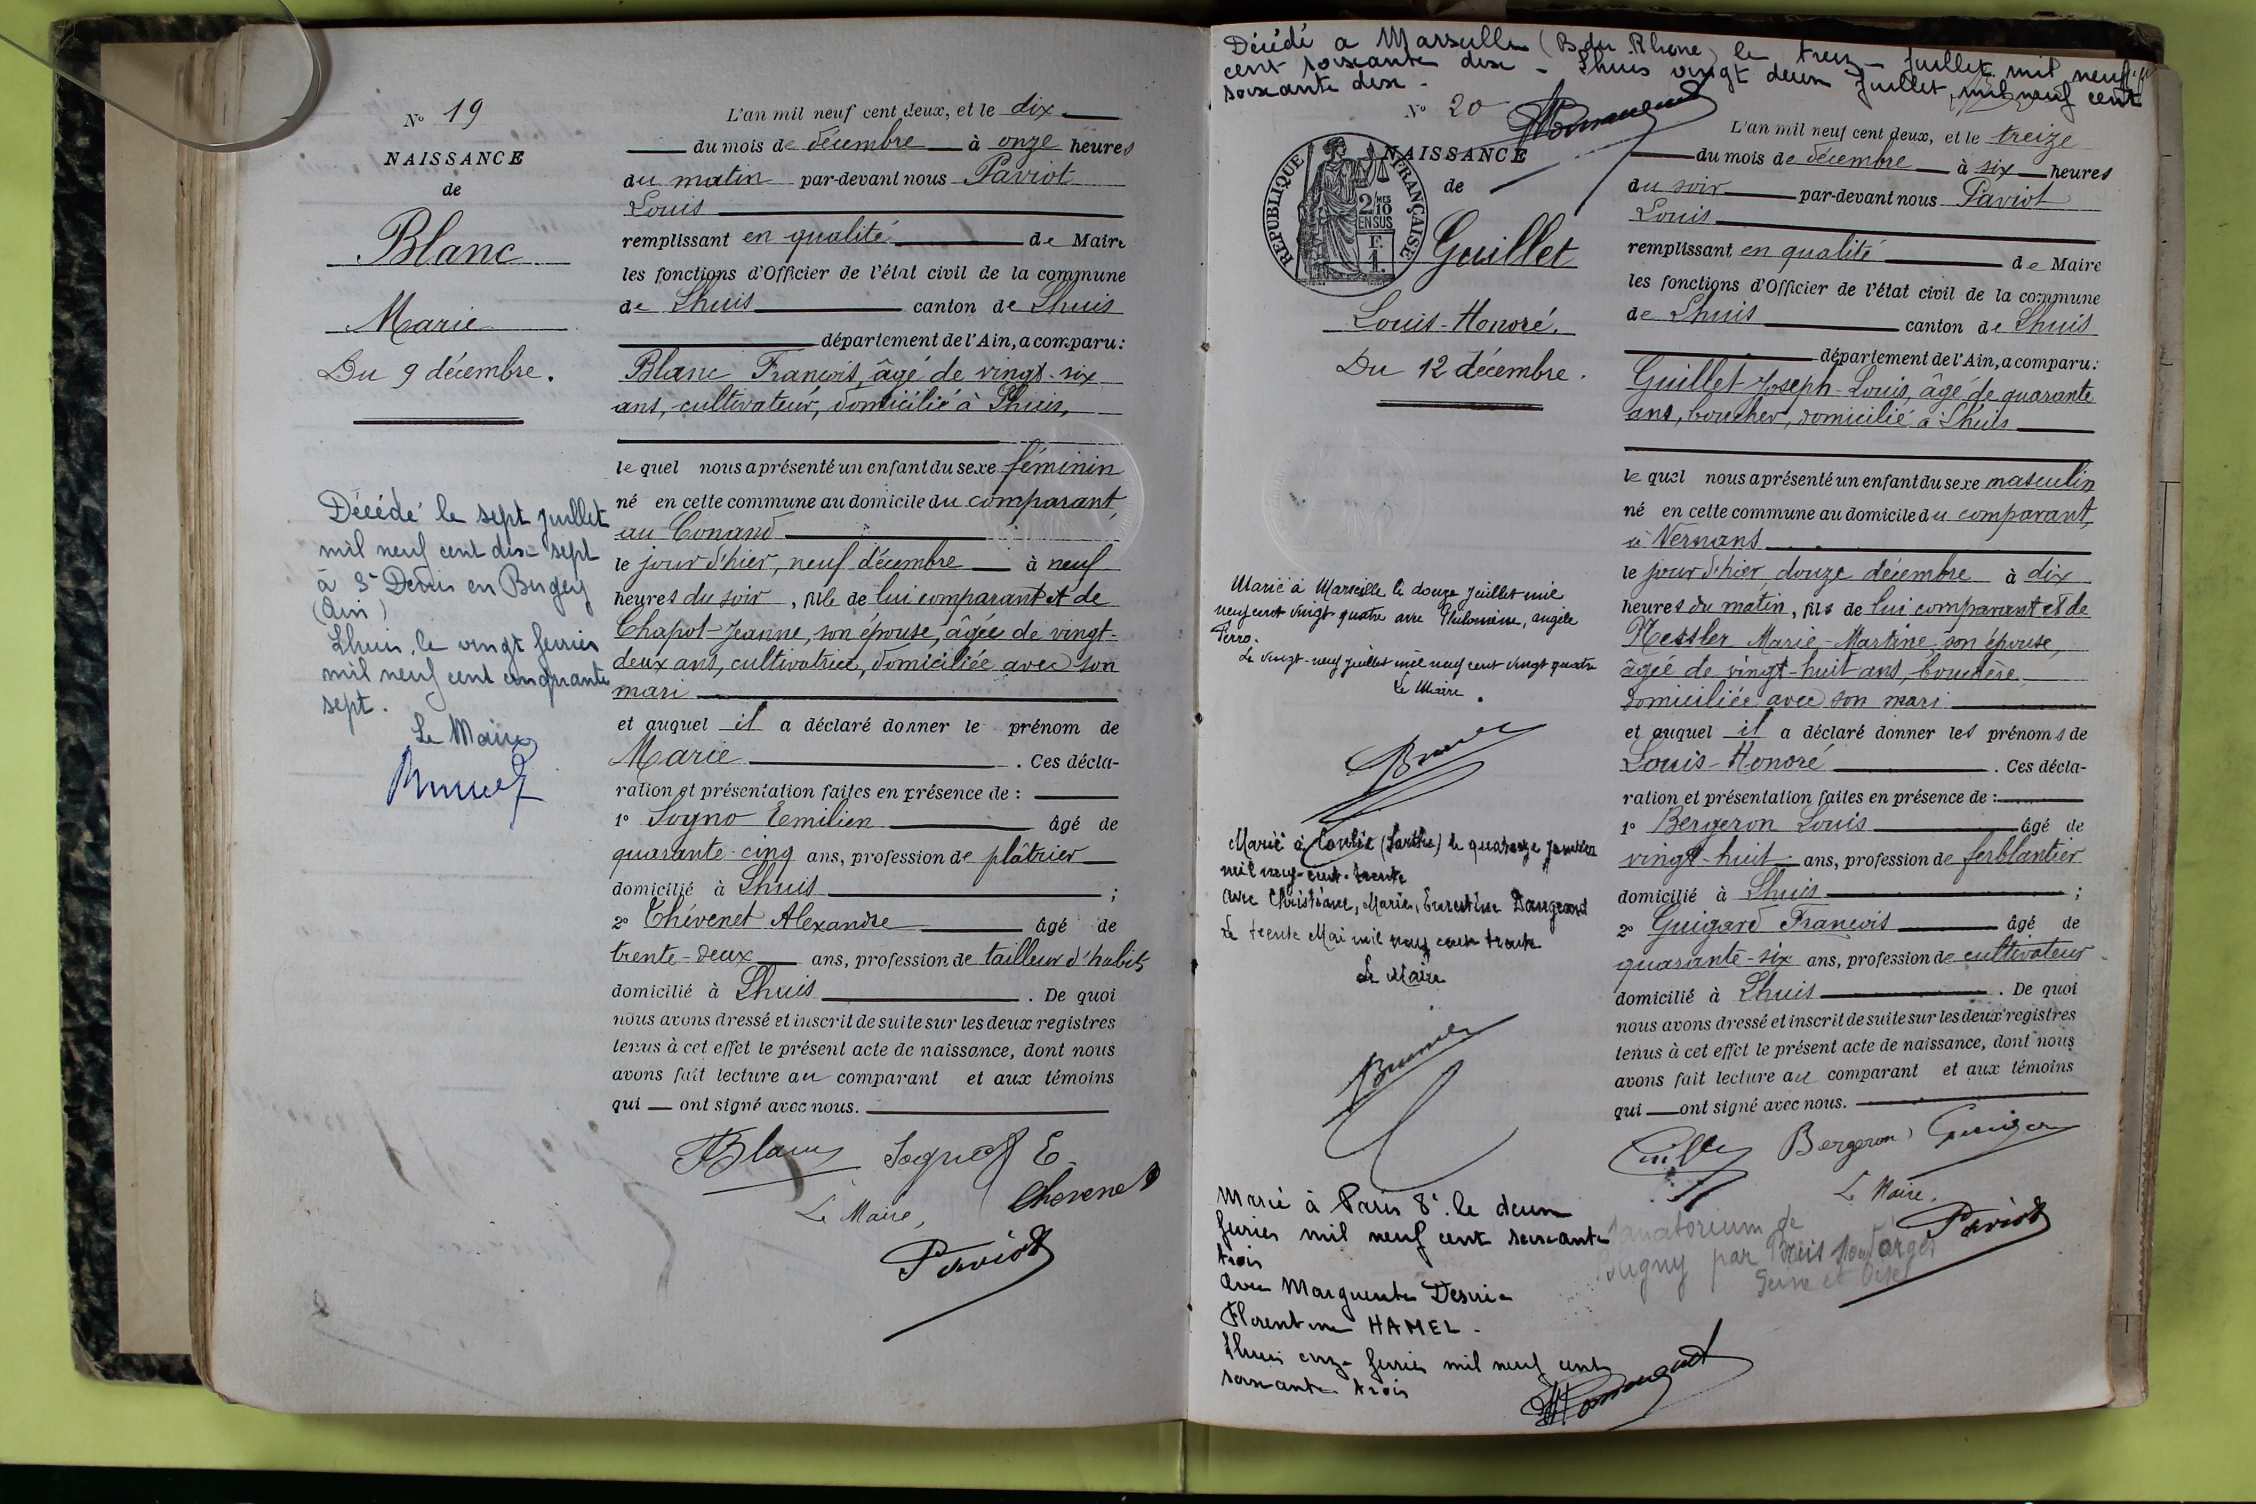 N° 19
NAISSANCE
de
Blanc
Marie
Du 9 décembre.
Décédé le sept juillet
mil neuf cent dix-sept
à St Denis en Bugey
(Ain)
Lhuis, le vingt fevrier
mil neuf cent cinquante
sept.
Le Maire
L'an mil neuf cent deux, et le dix
du mois de décembre à onze heures
du matin par-devant nous Paviot
Louis
remplissant en qualité de Maire
les fonctions d'Officier de l'état civil de la commune
de Lhuis canton de Lhuis
département de l'Ain, a comparu:
Blanc François, âgé de vingt-six
ans, cultivateur, domicilié à Lhuis,
lequel nous a présenté un enfant du sexe féminin
né en cette commune au domicile du comparant,
au Conand
le jour d'hier, neuf décembre à neuf
heures du soir, fille de lui comparant et de
Chapot Jeanne, son épouse, âgée de vingt-
deux ans, cultivatrice, domiciliée avec son
mari
et auquel il a déclaré donner le prénom de
Marie. Ces décla-
ration et présentation faites en présence de :
1° Sogno Emilien âgé de
quarante-cinq ans, profession de plâtrier
domicilié à Lhuis ;
2° Thévenet Alexandre âgé de
trente-deux ans, profession de tailleur d'habits
domicilié à Lhuis. De quoi
nous avons dressé et inscrit de suite sur les deux registres
tenus à cet effet le présent acte de naissance, dont nous
avons fait lecture au comparant et aux témoins
qui ont signé avec nous.
FBlanc Sogno E
Thevenet
Le Maire,
Paviot
Décédé a Marseille (B du Rhone) le treize juillet mil neuf
cent soixante dix - Lhuis vingt deux juillet mil neuf cent
soixante dix -
N° 20
NAISSANCE
de
RÉPUBLIQUE FRANÇAISE
2/10 MES
EN SUS
Guillet
Louis-Honoré.
Du 12 décembre.
Marié à Marseille le douze juillet mil
neuf cent vingt quatre avec Philomène, angèle
Ferro.
Le vingt-neuf juillet mil neuf cent vingt quatre
Le Maire
Brunet
Marié à Conlie (Sarthe) le quatorze janvier
mil neuf-cent-trente
avec Christiane, Marie, Ernestine Dangeard
Le trente Mai mil neuf cent trente
Le Maire
Brunet
Marié à Paris 8e le deux
fevrier mil neuf cent soixante
trois
avec Marguerite Desirée
Florentine HAMEL -
Lhuis onze fevrier mil neuf cent
soixante trois
L'an mil neuf cent deux, et le treize
du mois de décembre à six heures
du soir par-devant nous Paviot
Louis
remplissant en qualité de Maire
les fonctions d'Officier de l'état civil de la commune
de Lhuis canton de Lhuis
département de l'Ain, a comparu:
Guillet Joseph-Louis, âgé de quarante
ans, boucher, domicilié à Lhuis
lequel nous a présenté un enfant du sexe masculin
né en cette commune au domicile du comparant,
à Vernans
le jour d'hier douze décembre à dix
heures du matin, fils de lui comparant et de
Nessler Marie-Martine, son épouse,
âgée de vingt-huit ans, bouchère,
domiciliée avec son mari
et auquel il a déclaré donner les prénoms de
Louis-Honoré. Ces décla-
ration et présentation faites en présence de :
1° Bergeron Louis âgé de
vingt-huit ans, profession de ferblantier
domicilié à Lhuis ;
2° Guigard François âgé de
quarante-six ans, profession de cultivateur
domicilié à Lhuis. De quoi
nous avons dressé et inscrit de suite sur les deux registres
tenus à cet effet le présent acte de naissance, dont nous
avons fait lecture au comparant et aux témoins
qui ont signé avec nous.
Guillet Bergeron Guigard
Le Maire.
Paviot
Sanatorium de
par
Seine et Oise